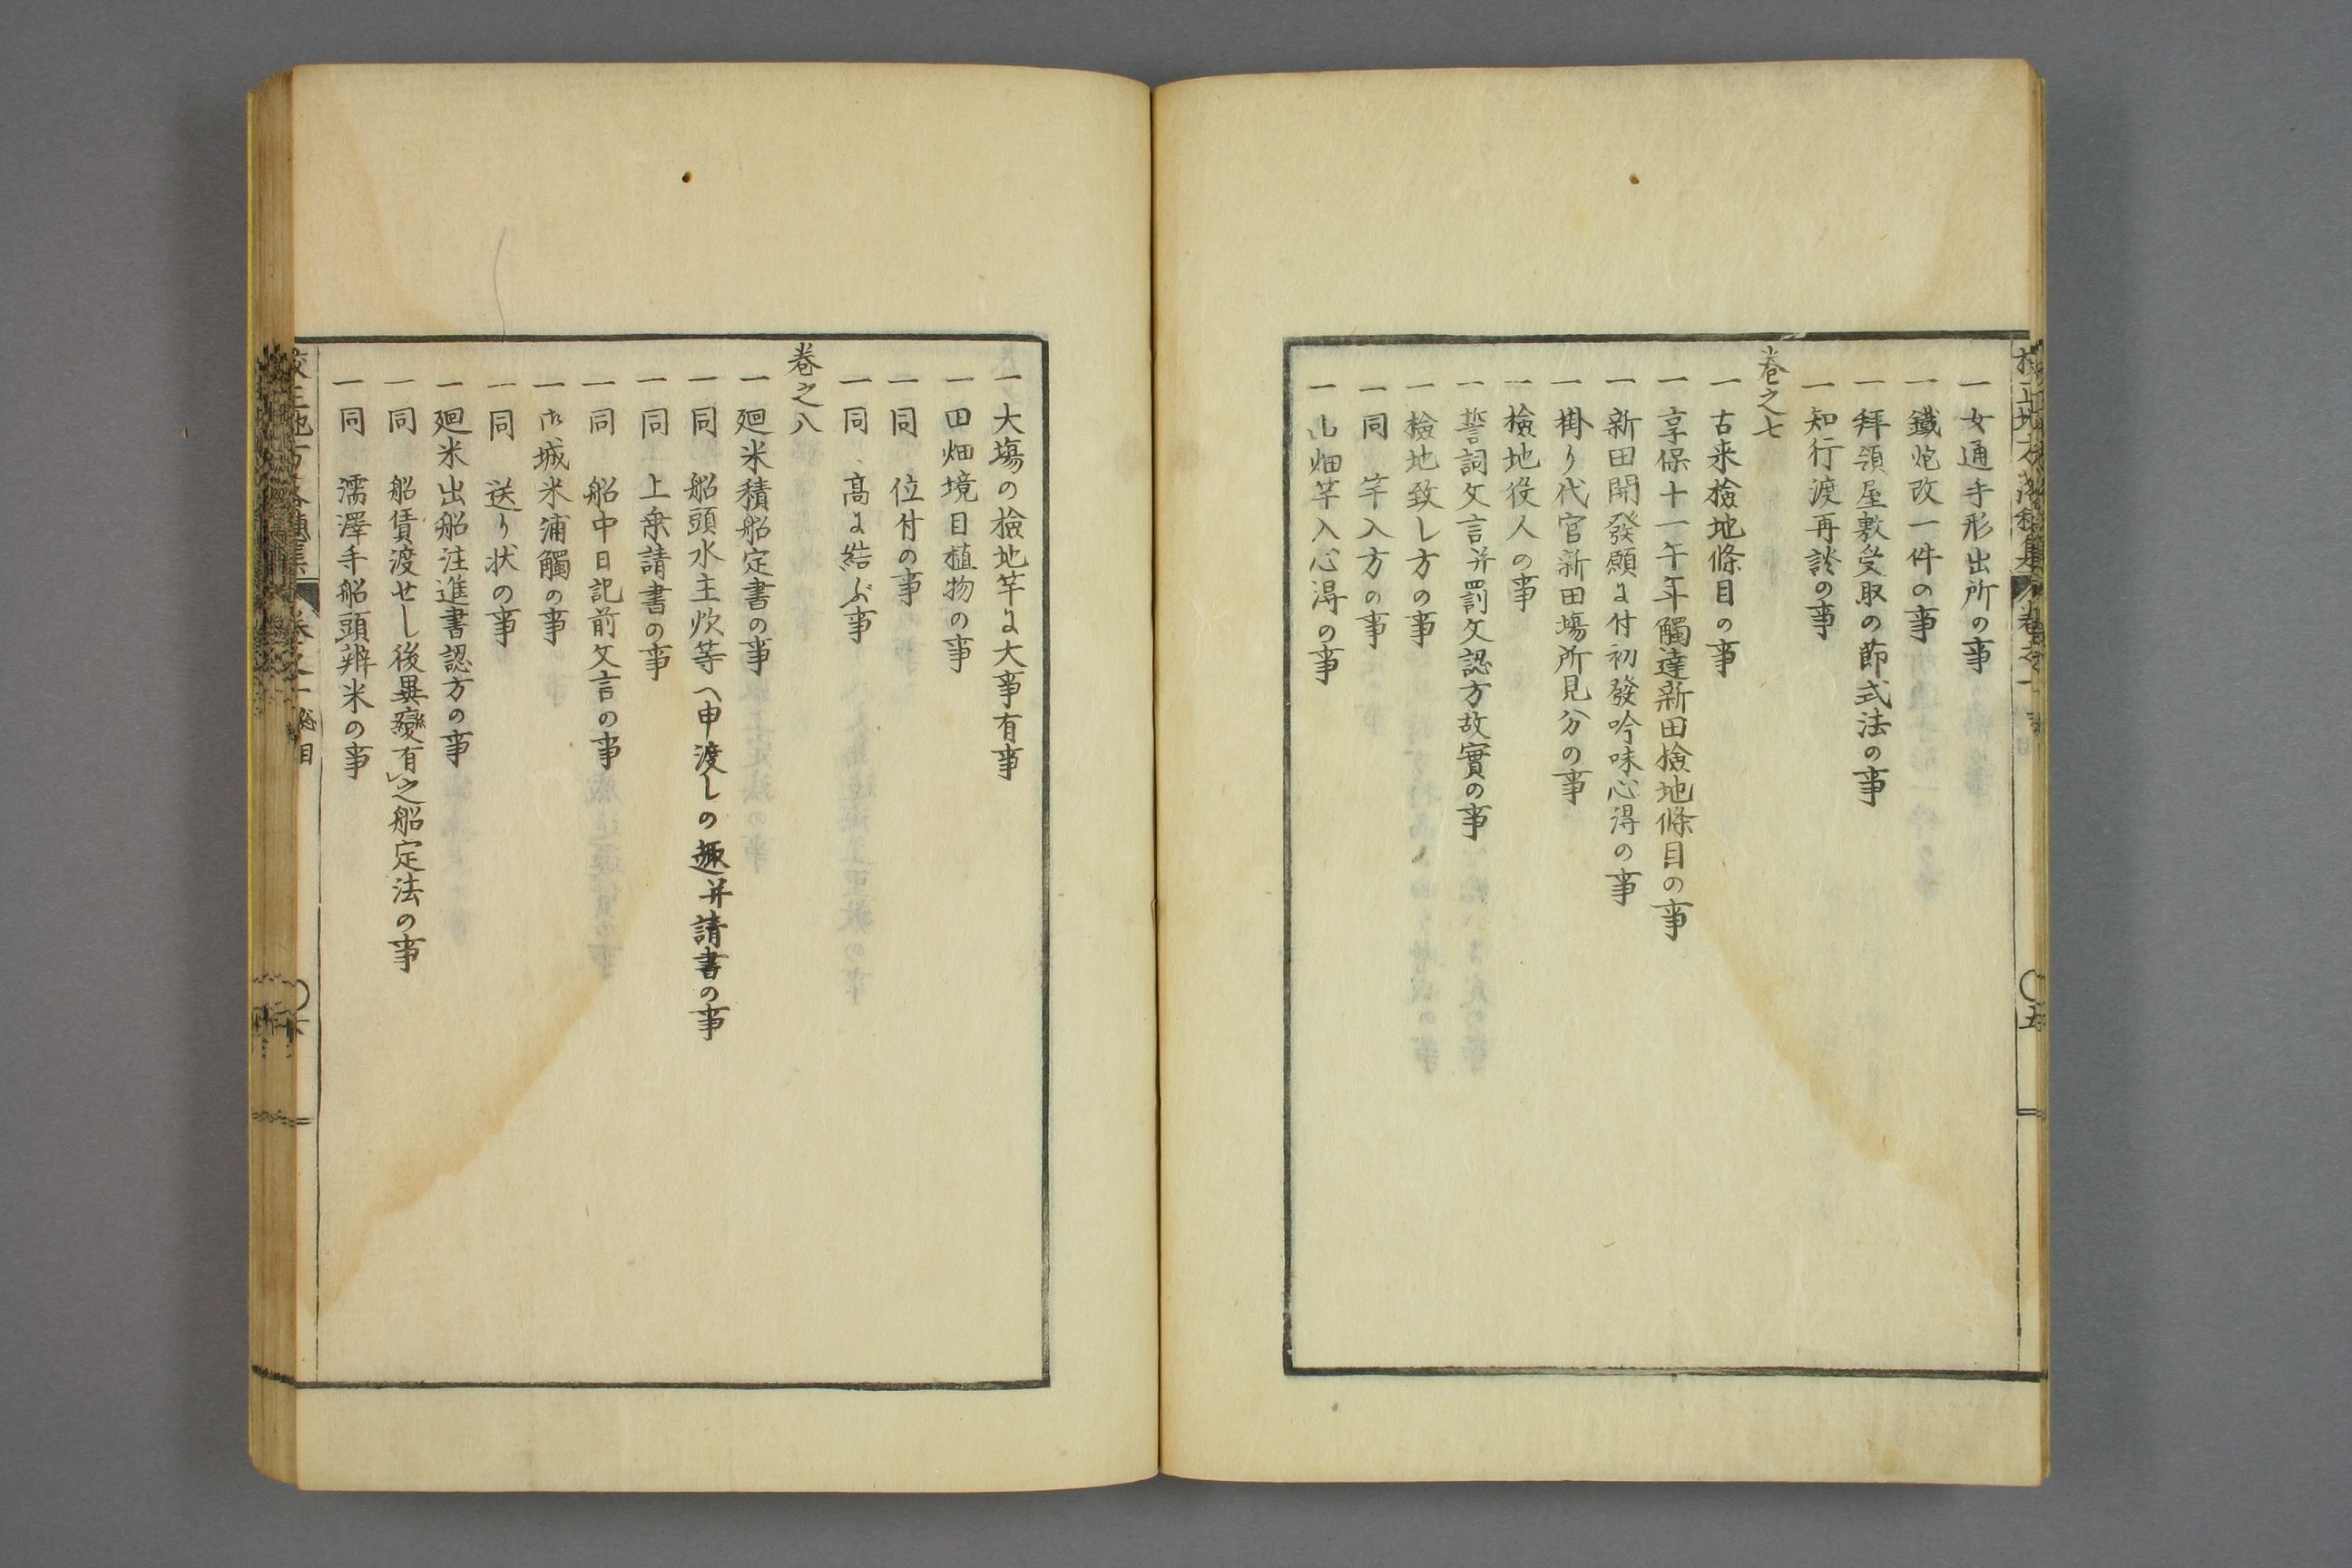 一女通手形出所の事
一鐵炮改一件の事
一拜領屋敷受取の節式法の事
一知行渡再談の事
巻之七
一古来檢地條目の事
一享保十一午年觸達新田檢地條目の事
一新田開發願に付初發吟味心得の事
一掛り代官新田塲所見分の事
一檢地役人の事
一誓詞文言并罰文認方故實の事
一檢地致し方の事
一同 竿入方の事
一山畑竿入心得の事
五
一大塲の檢地竿に大事有事
一田畑境目植物の事
一同 位付の事
一同 髙に結ぶ事
巻之八
一廻米積船定書の事
一同 船頭水主炊等へ申渡しの趣并請書の事
一同 上乗請書の事
一同 船中日記前文言の事
一御城米浦觸の事
一同 送り状の事
一廻米出船注進書認方の事
一同 船賃渡せし後異變有之船定法の事
一同 濡澤手船頭辨米の事